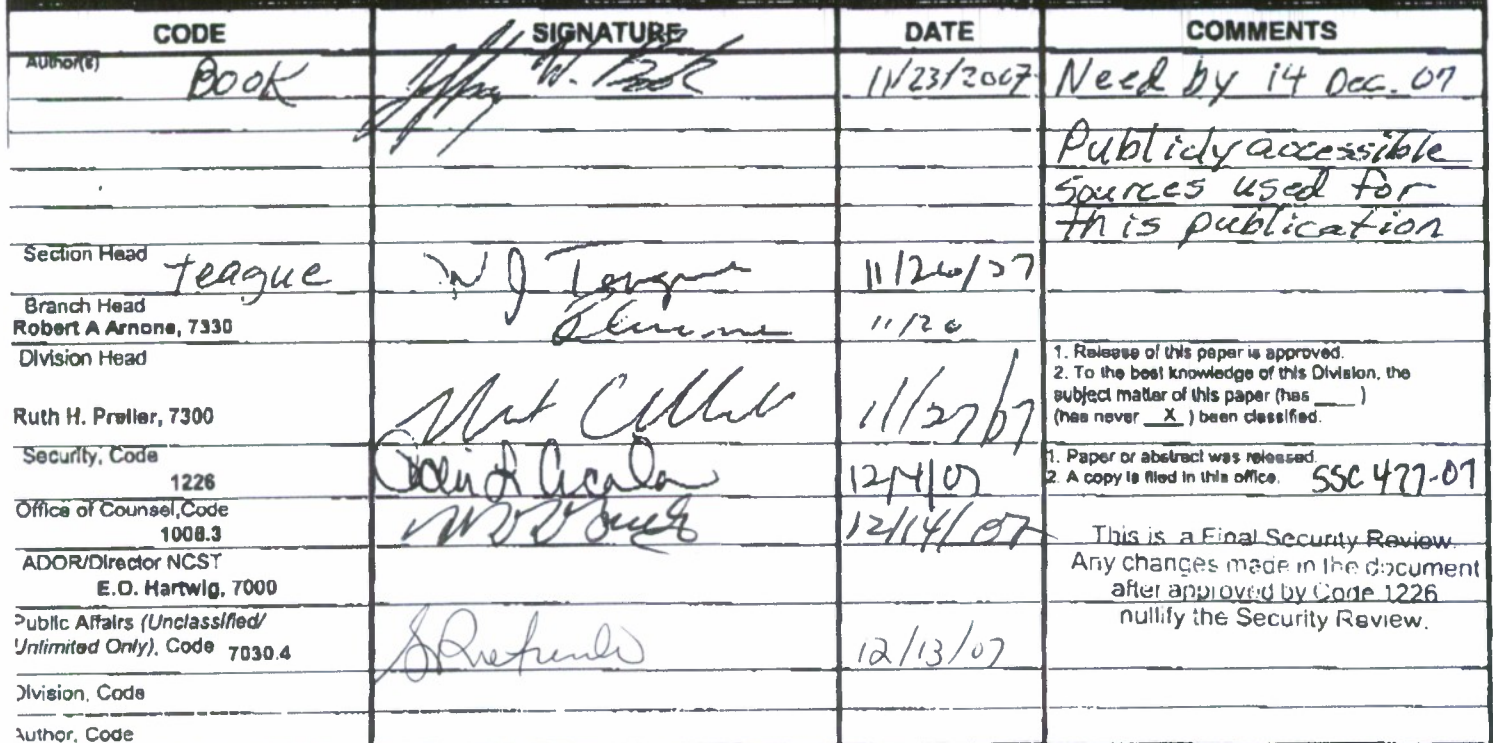 CODE SIGNATURE DATE COMMENTS
Author(s) BOOK W. Book 11/23/2007 Need by 14 Dec. 07
Publicly accessible
sources used for
this publication
Section Head Teague W J Teague 11/26/07
Branch Head
Robert A Arnone, 7330 11/26
Division Head
Ruth H. Preller, 7300 11/27/07
1. Release of this paper is approved.
2. To the best knowledge of this Division, the
subject matter of this paper (has ____ )
(has never X ) been classified.
Security, Code
1226 12/4/07
1. Paper or abstract was released.
2. A copy is filed in this office. SSC 477-07
Office of Counsel,Code
1008.3 12/14/07
ADOR/Director NCST
E.O. Hartwig, 7000
This is a Final Security Review.
Any changes made in the document
after approved by Code 1226
nullify the Security Review.
Public Affairs (Unclassified/
Unlimited Only), Code 7030.4 12/13/07
Division, Code
Author, Code